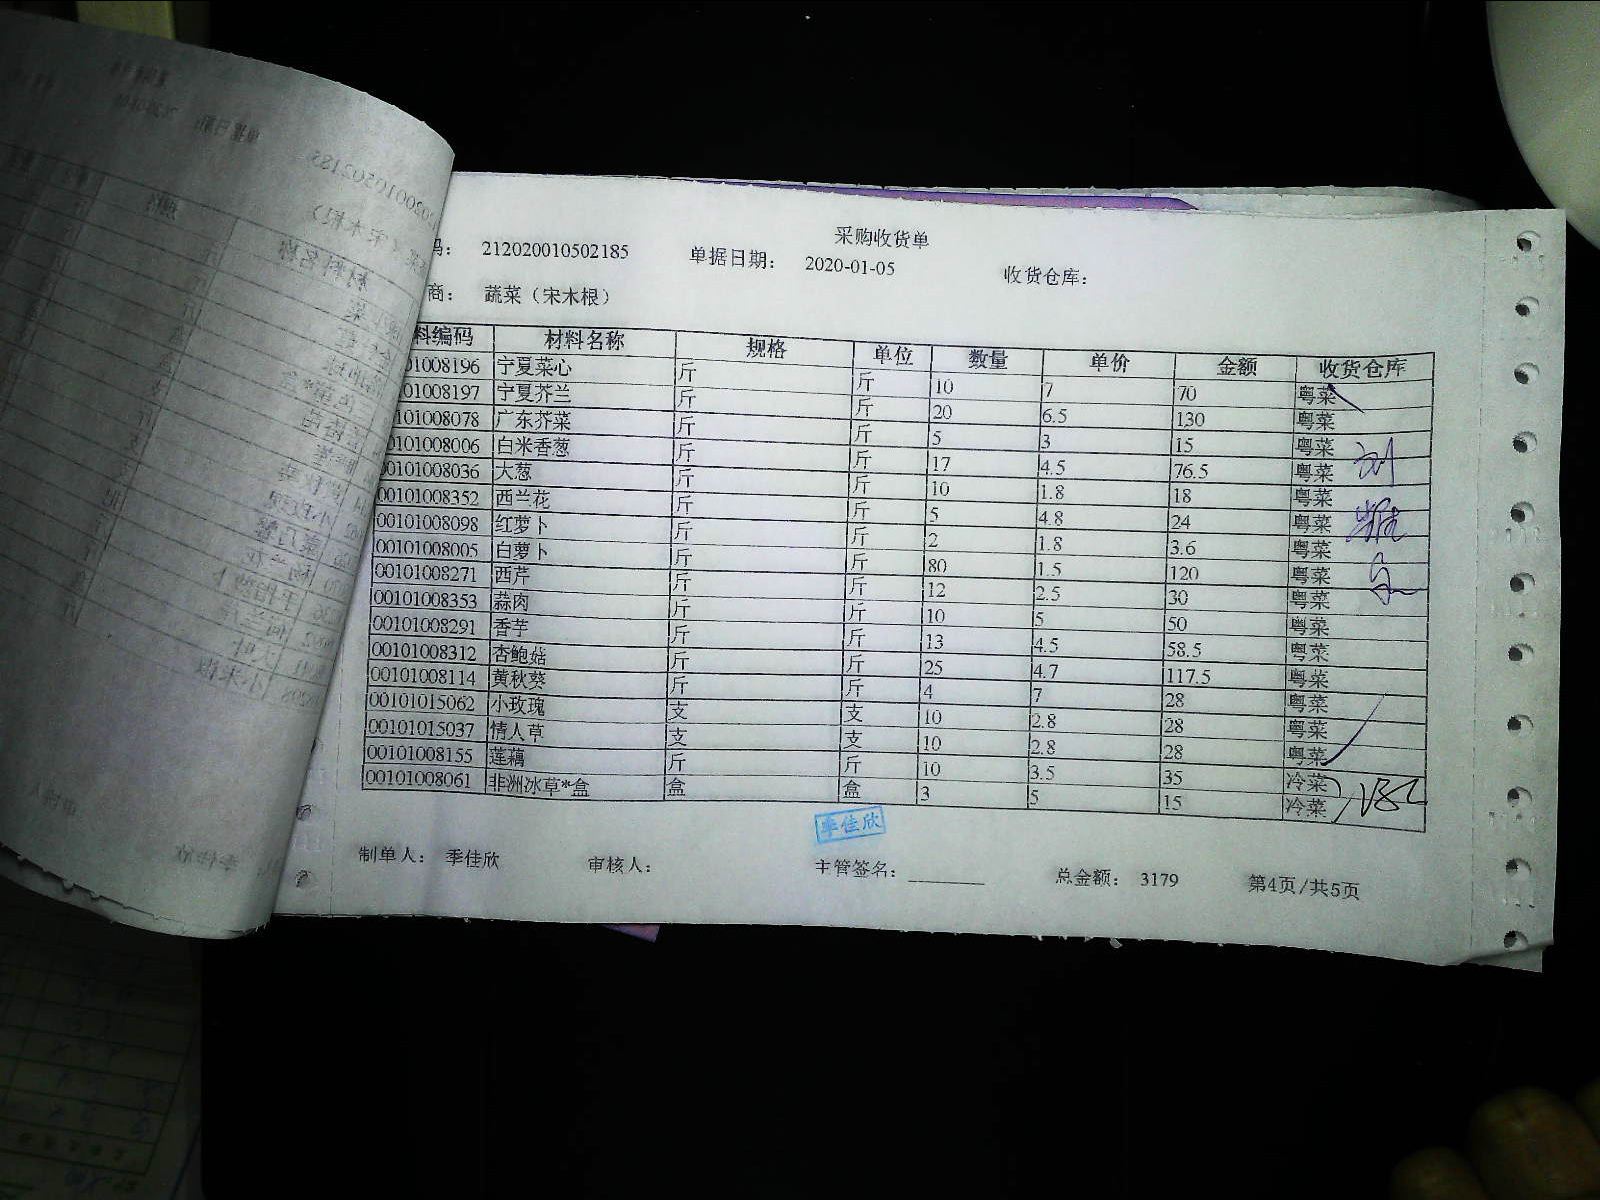 采购收货单
码： 212020010502185 单据日期： 2020-01-05 收货仓库：
商： 蔬菜（宋木根）
料编码 材料名称 规格 单位 数量 单价 金额 收货仓库
01008196 宁夏菜心 斤 斤 10 7 70 粤菜
01008197 宁夏芥兰 斤 斤 20 6.5 130 粤菜
01008078 广东芥菜 斤 斤 5 3 15 粤菜
0101008006 白米香葱 斤 斤 17 4.5 76.5 粤菜
0101008036 大葱 斤 斤 10 1.8 18 粤菜
00101008352 西兰花 斤 斤 5 4.8 24 粤菜
00101008098 红萝卜 斤 斤 2 1.8 3.6 粤菜
00101008005 白萝卜 斤 斤 80 1.5 120 粤菜
00101008271 西芹 斤 斤 12 2.5 30 粤菜
00101008353 蒜肉 斤 斤 10 5 50 粤菜
00101008291 香芋 斤 斤 13 4.5 58.5 粤菜
00101008312 杏鲍菇 斤 斤 25 4.7 117.5 粤菜
00101008114 黄秋葵 斤 斤 4 7 28 粤菜
00101015062 小玫瑰 支 支 10 2.8 28 粤菜
00101015037 情人草 支 支 10 2.8 28 粤菜
00101008155 莲藕 斤 斤 10 3.5 35 冷菜
00101008061 非洲冰草*盒 盒 盒 3 5 15 冷菜
季佳欣
制单人： 季佳欣 审核人： 主管签名：________ 总金额： 3179 第4页/共5页